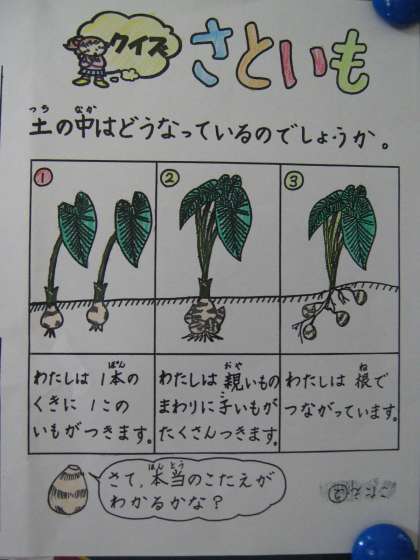 クイズ
さといも
土の中はどうなっているのでしょうか。
つち なか
①
わたしは 1本の
ぽん
くきに 1この
いもがつきます。
②
わたしは 親いもの
おや
まわりに 子いもが
こ
たくさんつきます。
③
わたしは 根で
ね
つながっています。
さて、本当のこたえが
ほんとう
わかるかな?